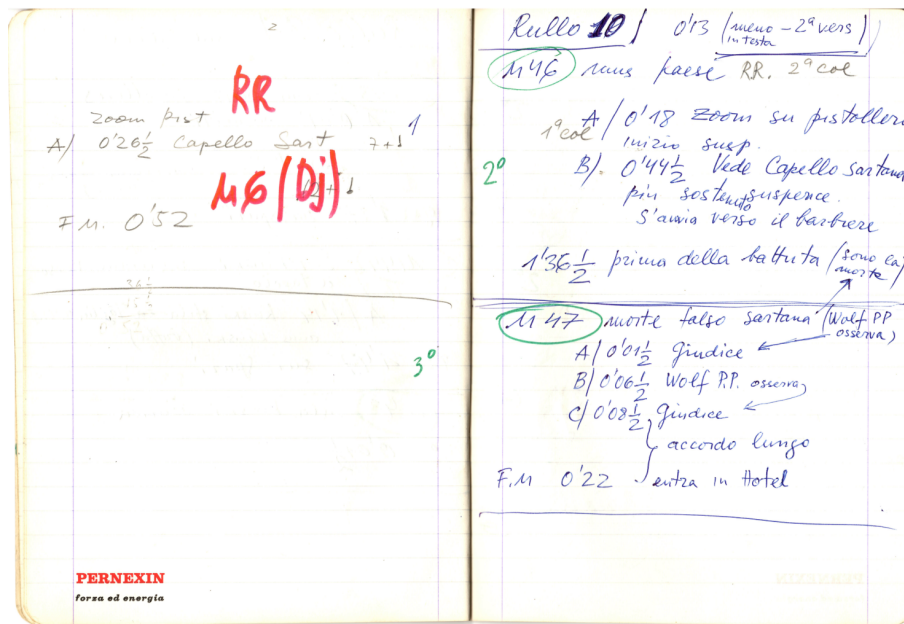 2
RR
zoom pist
A/ 0'26½ Capello Sart 7+1
1
M6 (Dj)
12+1
F M. 0'52
3º
PERNEXIN
forza ed energia
Rullo 10 / 0'13 (meno - 2ª vers)
in testa
M46 mus paese RR. 2ª col
1ª col
A/ 0'18 zoom su pistollero
inizio susp.
2º
B/. 0'44½ Vede Capello sartana
più sostenuto suspence.
S'avvia verso il barbiere
1'36½ prima della battuta (sono
morte)
M47 morte falso sartana (Wolf PP
osserva)
A/ 0'01½ Giudice
B/ 0'06½ Wolf P.P. osserva
C/ 0'08½ Giudice
accordo lungo
F.M 0'22 entra in Hotel